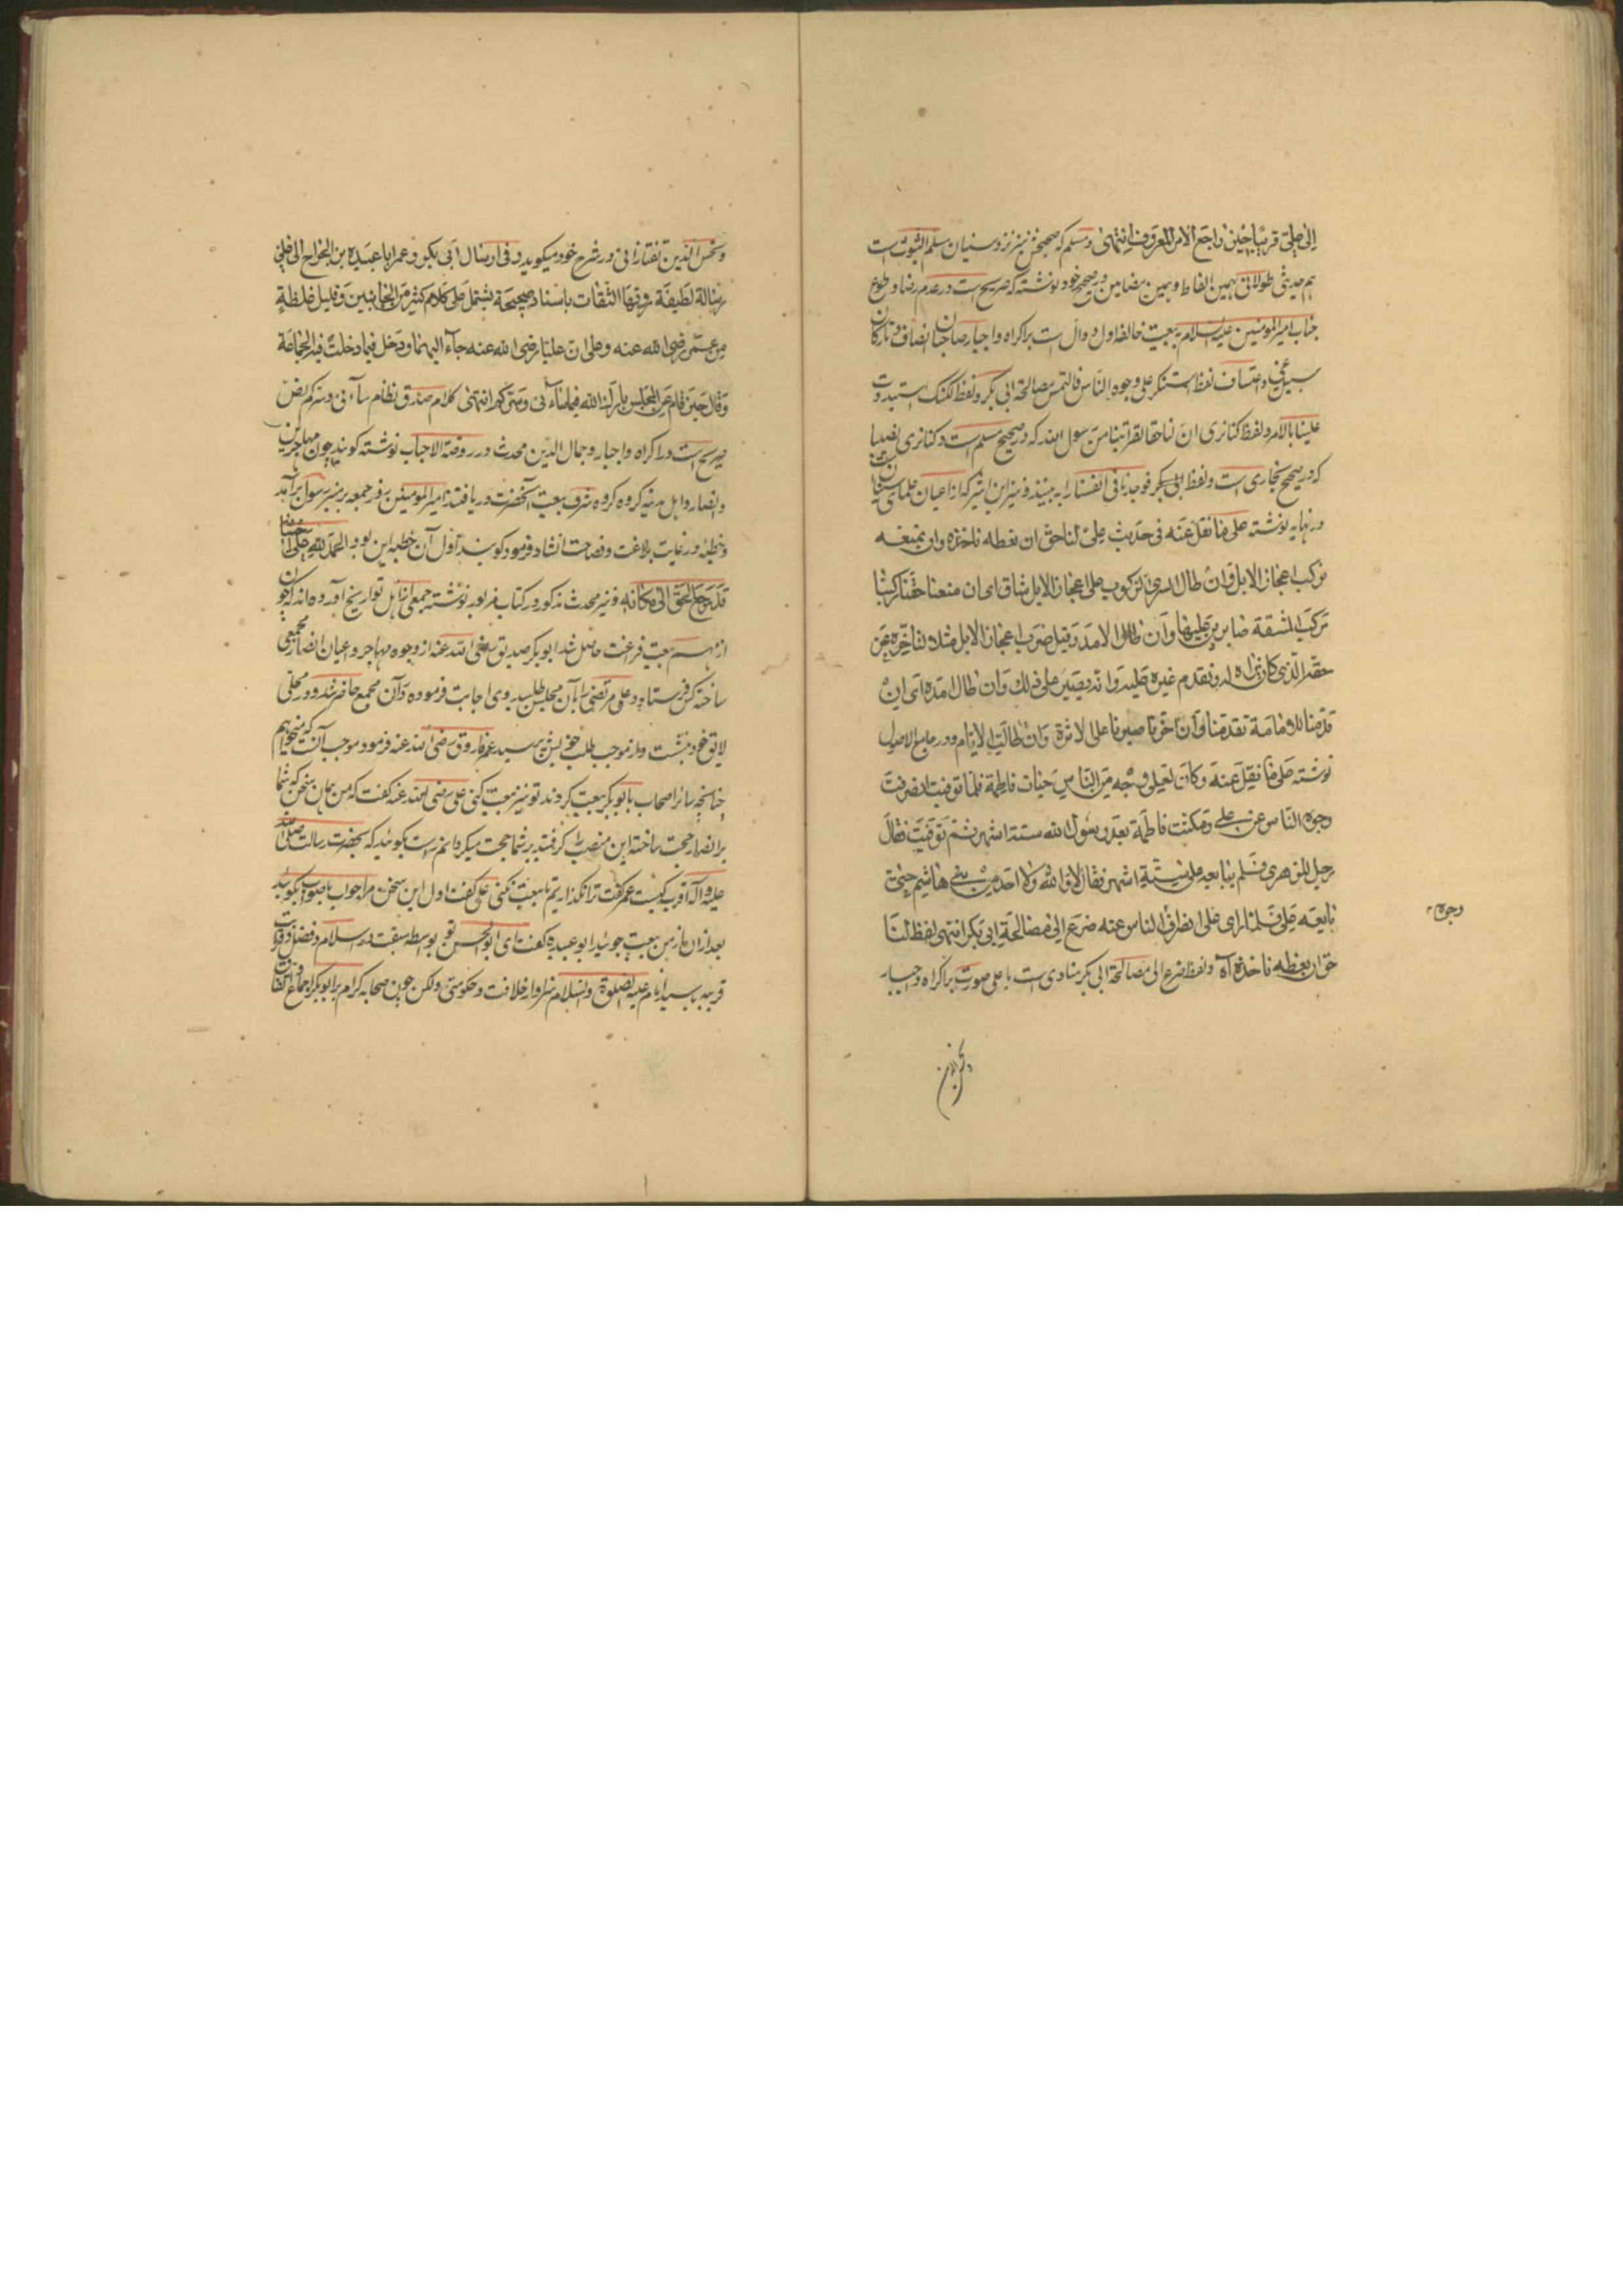 الی علی قریبا حین راجع الامر المعروف انتهی و مسلم که صحیحش نیز نزد سنیان مسلم الثبوت است
هم حدیثی طولانی بهمین الفاظ و بهمین مضامین در صحیح خود نوشته که صریح است در عدم رضا و طوع
جناب امیر المومنین علیه السلام به بیعت خالفه اول و دال است بر اکراه و اجبار صاحبان انصاف و تارکان
سبیل غی و اعتساف لفظ استنکر علی وجوه الناس فالتمس مصالحة ابی بکر و لفظ لکنک استبددت
علینا بالامر و لفظ کنا نری ان لنا حقا لقرابتنا من رسول الله که در صحیح مسلم است و کنا نری نصیبا
که در صحیح بخاری است و لفظ فوجدنا فی انفسنا را به بینند و نیز ابن اثیر که از اعیان علمای سنیان است
در نهایه نوشته علی ما نقل عنه فی حدیث علی لنا حق ان نعطه ناخذه وان نمنعه
نرکب اعجاز الابل وان طال السری الرکوب علی اعجاز الابل شاق ای ان منعنا حقنا رکبنا
مرکب المشقة صابرین علیها وان طال الامد وقیل ضرب اعجاز الابل مثلا لتاخره عن
حقه الذی کان یراه له وتقدم غیره علیه وانه یصبر علی ذلک وان طال امده ای ان
قدمنا للامامة تقدمنا وان اخرنا صبرنا علی الاثرة وان طالت الایام و در جامع الاصول
نوشته علی ما نقل عنه وکان لعلی وجه من الناس حیات فاطمة فلما توفیت انصرفت
وجوه الناس عن علی ومکثت فاطمة بعد رسول الله ستة اشهر ثم توفیت فقال
رجل للزهری فلم یبایعه علی ستة اشهر فقال لا والله ولا احد من بنی هاشم حتی
بایعه علی فلما رای علی انصراف الناس عنه ضرع الی مصالحة ابی بکر انتهی لفظ لنا
وجوه
حق ان نعطه ناخذه اه و لفظ ضرع الی مصالحة ابی بکر منادی است باعلی صوت بر اکراه و اجبار
وشمس الدین
وشمس الدین تفتازانی در شرح خود میکوید وفی ارسال ابی بکر وعمر ابا عبیدة بن الجراح الی علی
رسالة لطیفة روتها الثقات باسناد صحیحة یشتمل علی کلام کثیر من الجانبین وقلیل غلظة
من عمر رضی الله عنه وعلی ان علیا رضی الله عنه جاء الیهما ودخل فیما دخلت فیه الجماعة
وقال حین قام عن المجلس بارک الله فیما ساءنی وسرکم انتهی کلام صدق نظام ساءنی وسرکم نص
صریح است در اکراه و اجبار و جمال الدین محدث در روضة الاحباب نوشته کویند چون مهاجرین
و انصار و اهل مدینه کروه کروه شرف بیعت آنحضرت دریافتند امیر المومنین روز جمعه بر منبر رسول برآمد
و خطبه در غایت بلاغت و فصاحت انشاد فرمود کویند اول آن خطبه این بود الحمد لله علی احسانه
قد رجع الحق الی مکانه و نیز محدث مذکور در کتاب مزبور نوشته جمعی از اهل تواریخ آورده اند که چون
از مهم بیعت فراغت حاصل شد ابوبکر صدیق رضی الله عنه از وجوه مهاجر و اعیان انصار مجمعی
ساخته کس فرستاد و علی مرتضی را بآن مجلس طلبید وی اجابت فرموده در آن مجمع حاضر شد و در محلی
لایق خود بنشست و از موجب طلب خویش پرسید عمر فاروق رضی الله عنه فرمود موجب آنست که میخواهیم
چنانچه سائر اصحاب با ابوبکر بیعت کردند تو نیز بیعت کنی علی رضی الله عنه کفت که من بهمان سخن که شما
بر انصار حجت ساخته این منصب را کرفتید بر شما حجت میکردانم راست بکوئید که بحضرت رسالت صلی الله
علیه و آله اقرب کیست عمر کفت ترا نکذاریم تا بیعت نکنی علی کفت اول این سخن مرا جواب باصواب بکوئید
بعد ازان از من بیعت جوئید ابو عبیده کفت ای ابو الحسن تو بواسطه سبقت در اسلام و فضل و قرابت
قریبه با سید انام علیه الصلوة والسلام سزاوار خلافت و حکومتی ولکن چون صحابه کرام بر ابوبکر اجماع و اتفاق